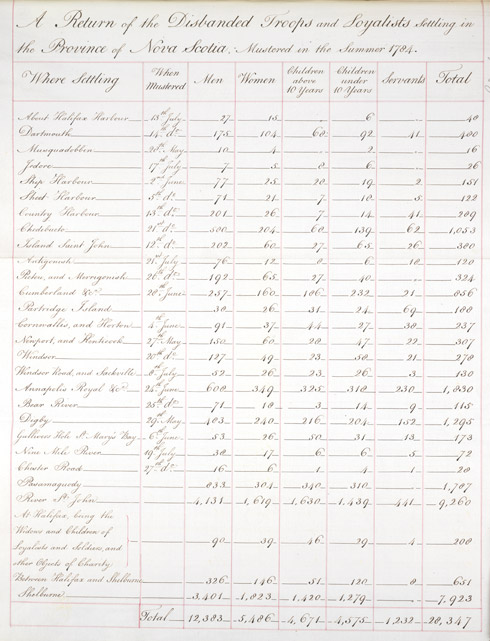 A Return of the Disbanded Troops and Loyalists Settling in
the Province of Nova Scotia, Mustered in the Summer 1784.
Where Settling When Mustered Men Women Children above 10 Years Children under 10 Years Servants Total
About Halifax Harbour 15th July 27 15 6 48
Dartmouth 14th do 175 104 68 92 41 480
Musquodobbin 20th May 10 4 2 16
Jedore 17th July 7 5 8 6 26
Ship Harbour 2nd June 77 25 28 19 2 151
Sheet Harbour 5th do 71 21 7 18 5 122
Country Harbour 13th do 201 26 7 14 41 289
Chedabucto 21st do 580 204 68 139 62 1,053
Island Saint John 12th do 202 60 27 65 26 380
Antigonish 21st July 76 12 8 6 18 120
Pictou, and Merrigomish 26th do 192 65 27 40 324
Cumberland &ca 28th June 257 160 186 232 21 856
Partridge Island 38 26 31 24 69 188
Cornwallis, and Horton 4th June 91 37 44 27 38 237
Newport, and Kentecook 27th May 150 60 28 47 22 307
Windsor 20th do 127 49 23 58 21 278
Windsor Road, and Sackville 8th July 52 26 23 26 3 130
Annapolis Royal &ca 24th June 608 349 325 318 230 1,830
Bear River 25th do 71 18 3 14 9 115
Digby 29th May 483 240 216 204 152 1,295
Gullivers Hole St Mary's Bay 6th June 53 26 50 31 13 173
Nine Mile River 19th July 38 17 6 6 5 72
Chester Road 27th do 16 6 1 4 1 28
Passamaquody 833 304 340 310 1,787
River St John 4,131 1,619 1,630 1,439 441 9,260
At Halifax, being the
Widows and Children of
Loyalists and Soldiers, and
other Objects of Charity 90 39 46 29 4 208
Between Halifax and Shelburne 326 146 51 120 8 651
Shelburne 3,401 1,823 1,420 1,279 7,923
Total 12,383 5,486 4,671 4,575 1,232 28,347